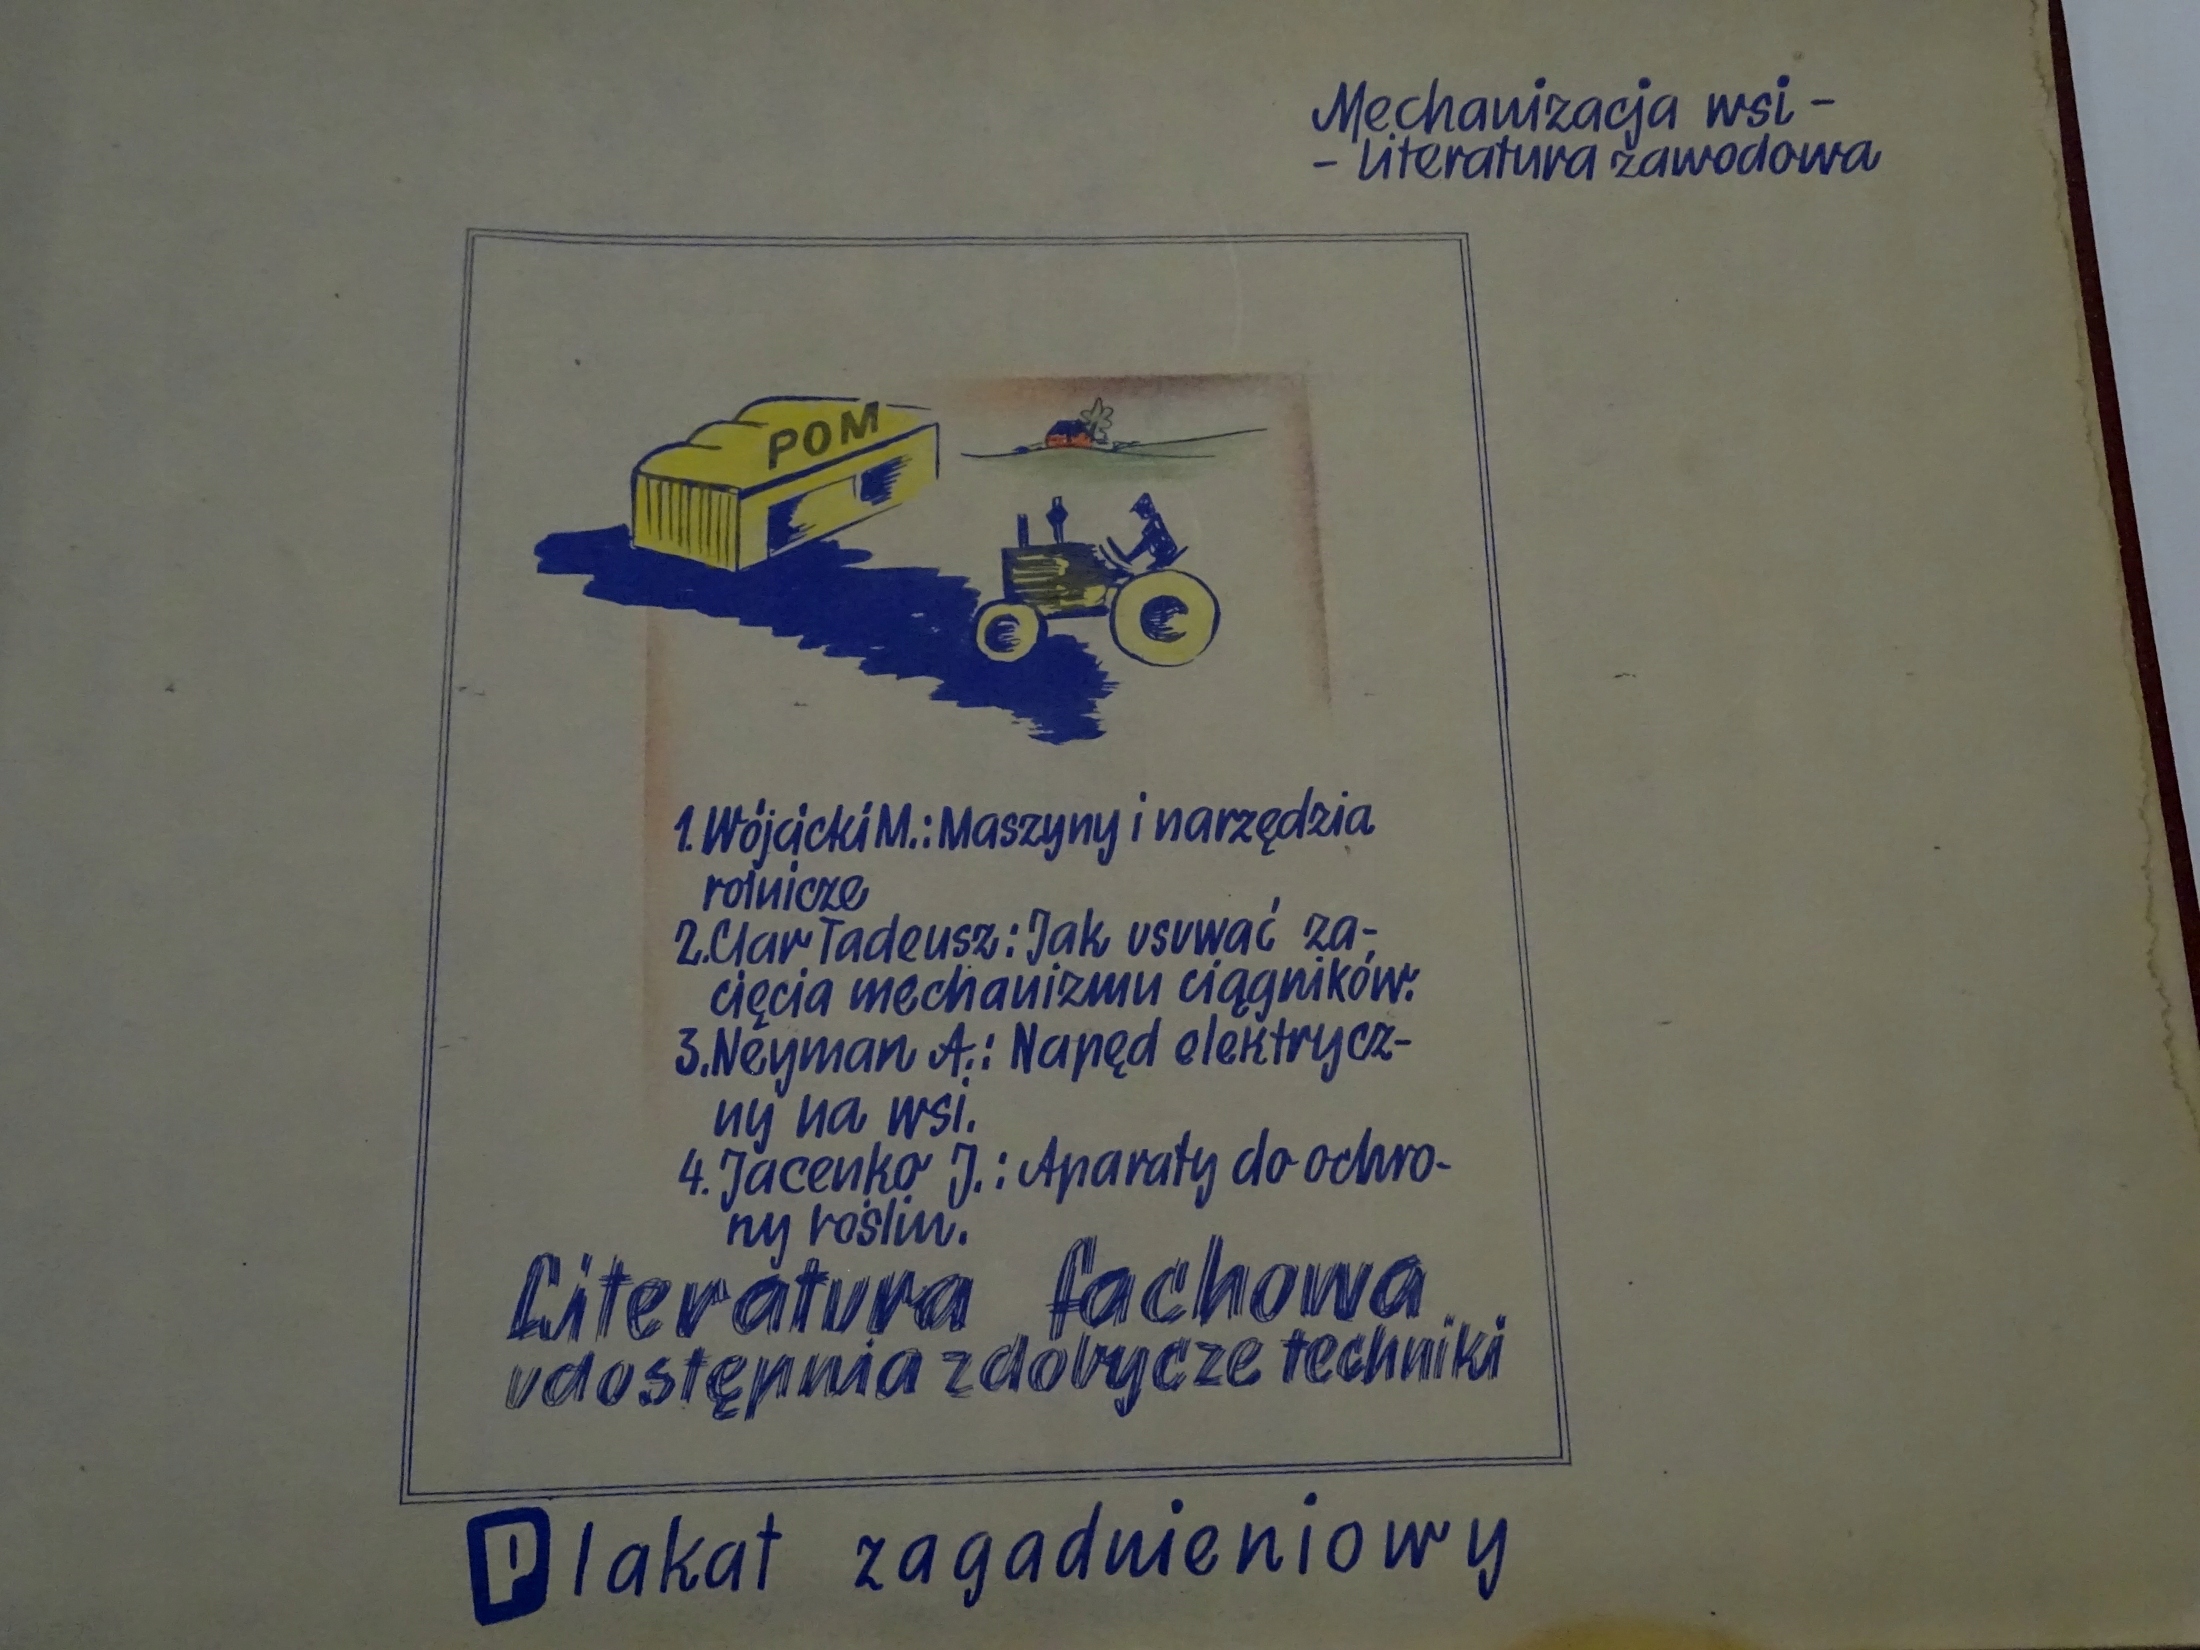 Mechanizacja wsi -
- Literatura zawodowa
POM
1. Wójcicki M.: Maszyny i narzędzia
rolnicze
2. Clar Tadeusz: Jak usuwać za-
cięcia mechanizmu ciągników.
3. Neyman A.: Napęd elektrycz-
ny na wsi.
4. Jacenko J.: Aparaty do ochro-
ny roślin.
Literatura fachowa
udostępnia zdobycze techniki
Plakat zagadnieniowy